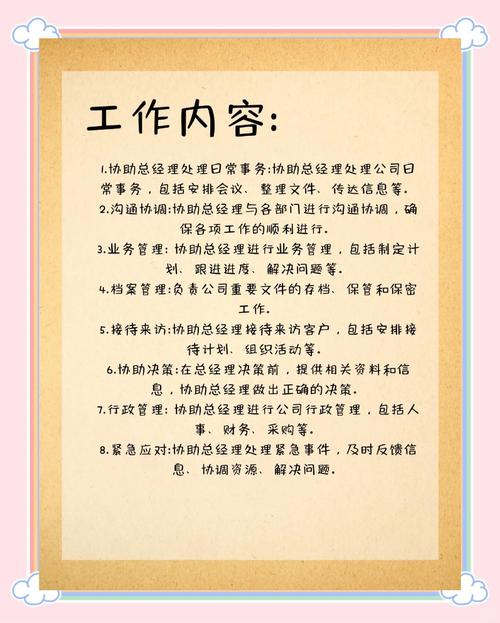 工作内容:
1.协助总经理处理日常事务:协助总经理处理公司日
常事务，包括安排会议、整理文件、传达信息等。
2.沟通协调:协助总经理与各部门进行沟通协调，确
保各项工作的顺利进行。
3.业务管理: 协助总经理进行业务管理，包括制定计
划、跟进进度、解决问题等。
4.档案管理:负责公司重要文件的存档、保管和保密
工作。
5.接待来访:协助总经理接待来访客户，包括安排接
待计划、组织活动等。
6.协助决策:在总经理决策前，提供相关资料和信
息，协助总经理做出正确的决策。
7.行政管理: 协助总经理进行公司行政管理，包括人
事、财务、采购等。
8.紧急应对:协助总经理处理紧急事件，及时反馈信
息、协调资源、解决问题。